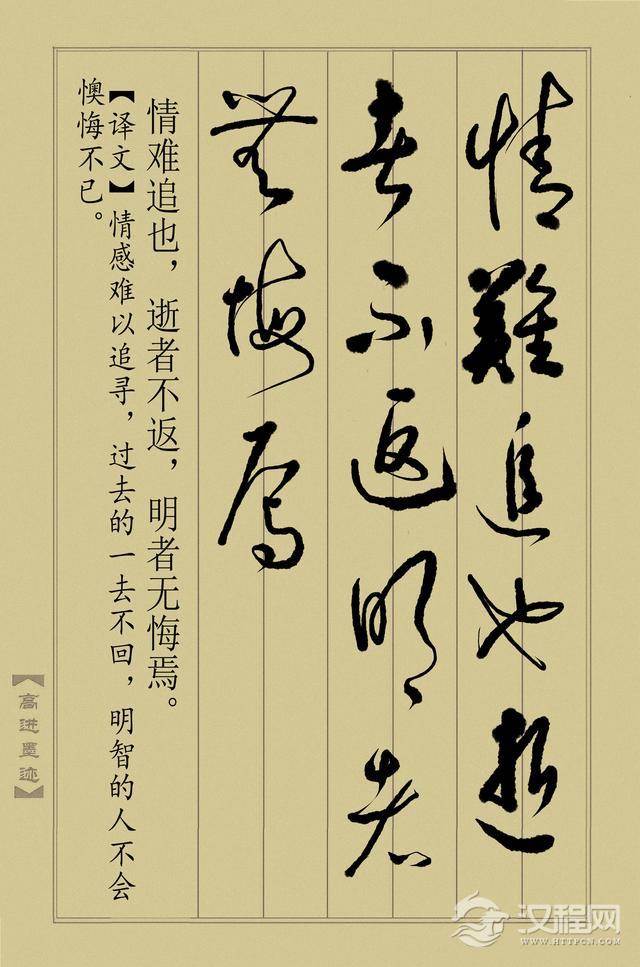 情難追也逝
者不返明者
無悔焉
情难追也，逝者不返，明者无悔焉。
【译文】情感难以追寻，过去的一去不回，明智的人不会
懊悔不已。
【高进墨迹】
汉程网
WWW.HTTPCN.COM